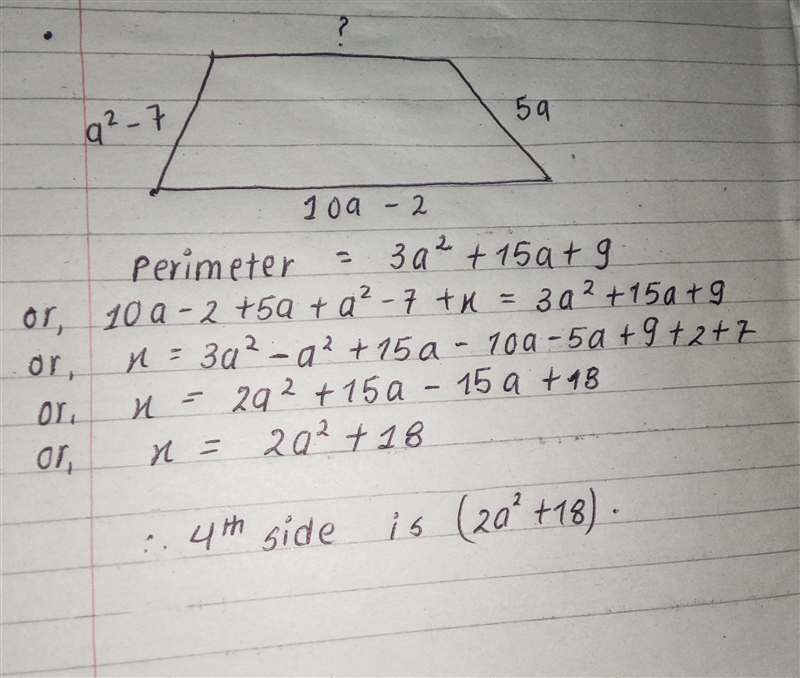 ?
a² - 7
5a
10a - 2
Perimeter = 3a² + 15a + 9
or, 10a - 2 + 5a + a² - 7 + x = 3a² + 15a + 9
or, x = 3a² - a² + 15a - 10a - 5a + 9 + 2 + 7
or, x = 2a² + 15a - 15a + 18
or, x = 2a² + 18
∴ 4th side is (2a² + 18).